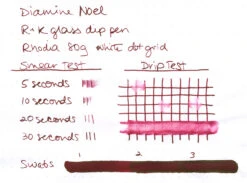 Diamine Noel
R+K glass dip pen
Rhodia 80g white dot grid
Smear Test
Drip Test
5 seconds
10 seconds
20 seconds
30 seconds
1 2 3
Swabs